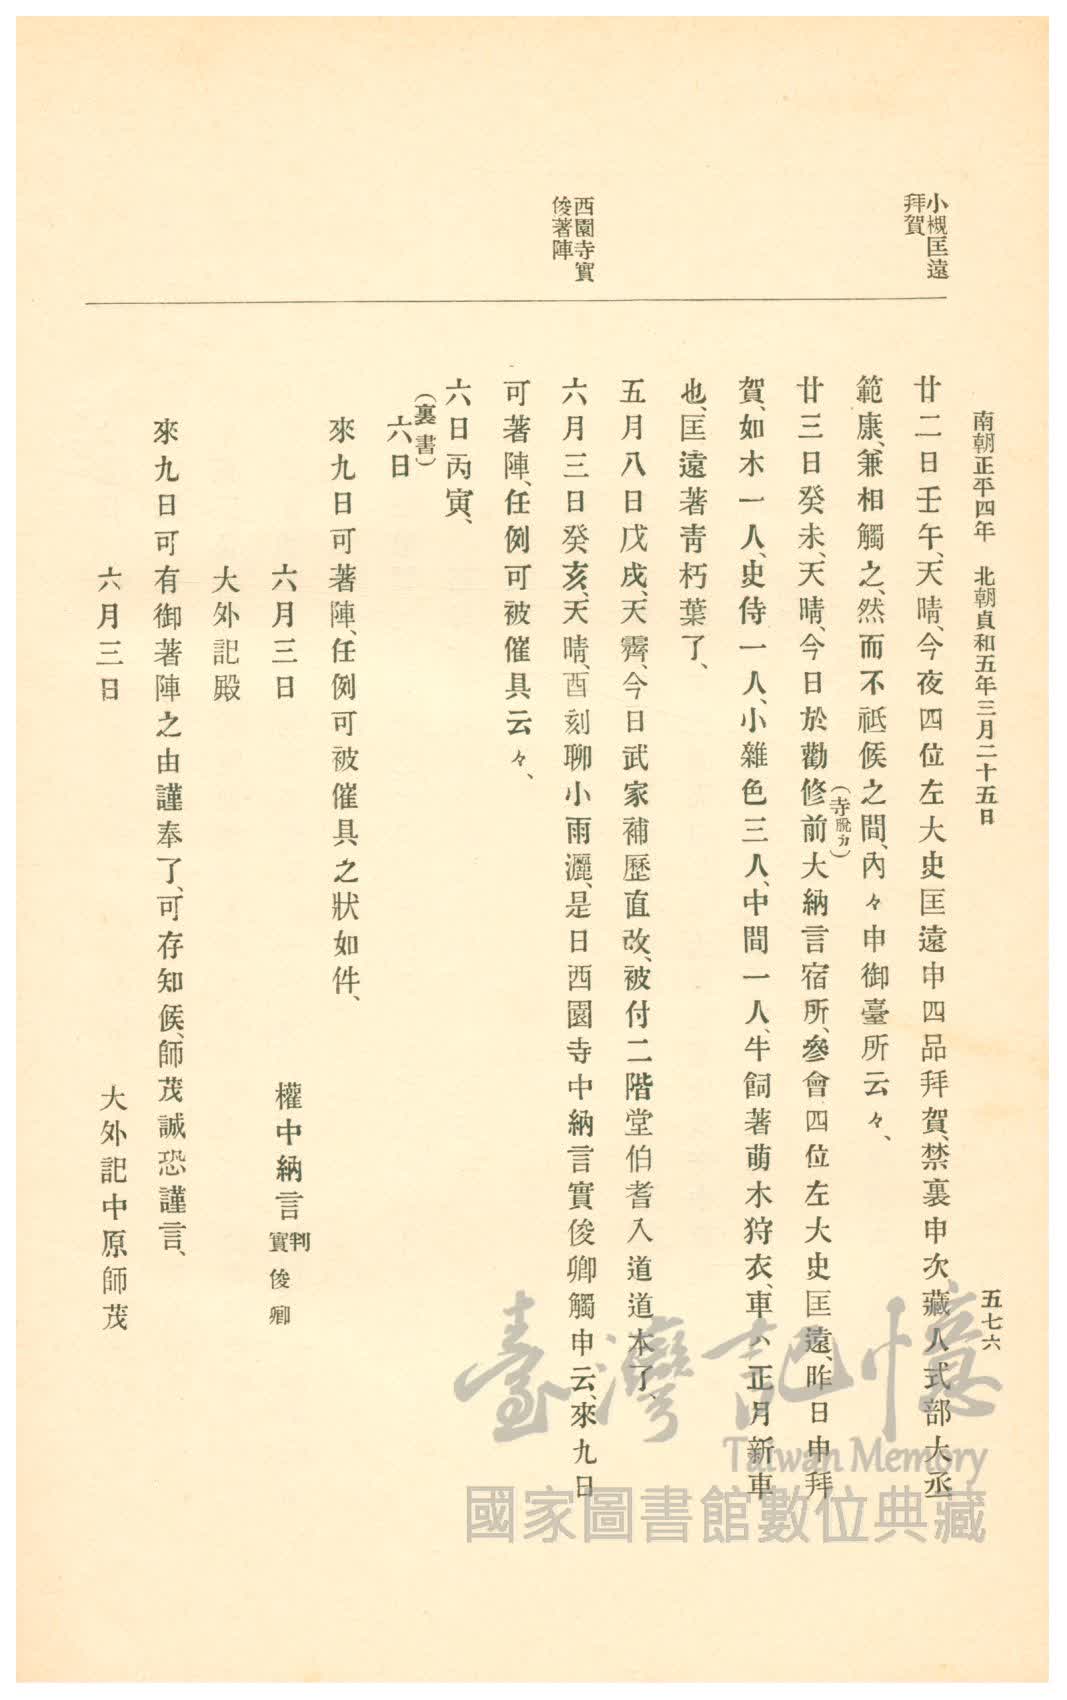 南朝正平四年　北朝貞和五年三月二十五日
五七六
小槻匡遠
拜賀
西園寺實
俊著陣
廿二日壬午、天晴、今夜四位左大史匡遠申四品拜賀、禁裏申次藏人式部大丞
範康、兼相觸之、然而不祗候之間、內々申御臺所云々、
廿三日癸未、天晴、今日於勸修前大納言宿所、參會四位左大史匡遠、昨日申拜
（寺脫カ）
賀、如木一人、史侍一人、小雜色三人、中間一人、牛飼著萌木狩衣、車ハ正月新車
也、匡遠著靑朽葉了、
五月八日戊戌、天霽、今日武家補歷直改、被付二階堂伯耆入道道本了、
六月三日癸亥、天晴、酉刻聊小雨灑、是日西園寺中納言實俊卿觸申云、來九日
可著陣、任例可被催具云々、
六日丙寅、
（裏書）
六日
來九日可著陣、任例可被催具之狀如件、
六月三日　權中納言判
實俊卿
大外記殿
來九日可有御著陣之由謹奉了、可存知候、師茂誠恐謹言、
六月三日　大外記中原師茂
臺灣記憶
Taiwan Memory
國家圖書館數位典藏